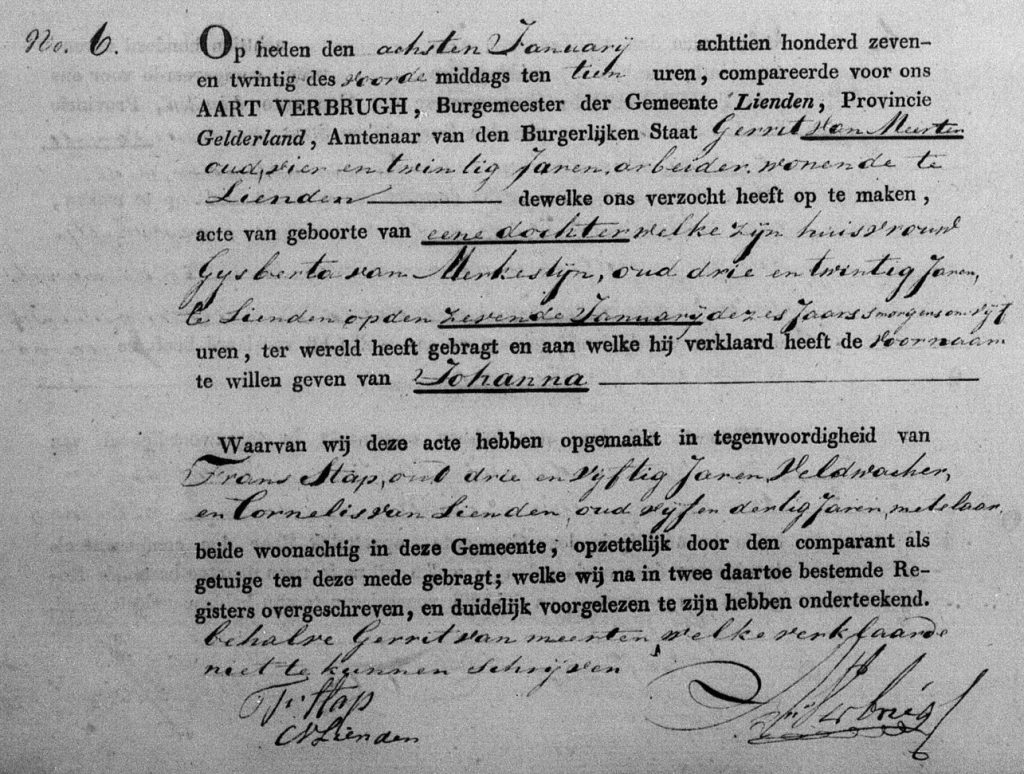 No. 6.
Op heden den achsten Januarij achttien honderd zeven-
en twintig des voorde middags ten tien uren, compareerde voor ons
AART VERBRUGH, Burgemeester der Gemeente Lienden, Provincie
Gelderland, Amtenaar van den Burgerlijken Staat Gerrit van Meerten
oud, vier en twintig Jaren, arbeider, wonende te
Lienden dewelke ons verzocht heeft op te maken,
acte van geboorte van eene dochter welke zijn huisvrouw
Gysberta van Merkestijn, oud drie en twintig Jaren,
te Lienden op den zevende Januarij dezes Jaars smorgens om vijf
uren, ter wereld heeft gebragt en aan welke hij verklaard heeft de voornaam
te willen geven van Johanna
Waarvan wij deze acte hebben opgemaakt in tegenwoordigheid van
Frans Stap, oud drie en vijftig Jaren, Veldwacher,
en Cornelis van Lienden, oud vijf en dertig Jaren, metselaar,
beide woonachtig in deze Gemeente, opzettelijk door den comparant als
getuige ten deze mede gebragt; welke wij na in twee daartoe bestemde Re-
gisters overgeschreven, en duidelijk voorgelezen te zijn hebben onderteekend.
behalve Gerrit van meerten, welke verklaarde
niet te kunnen schrijven
F: Stap
CVLienden
Verbrug